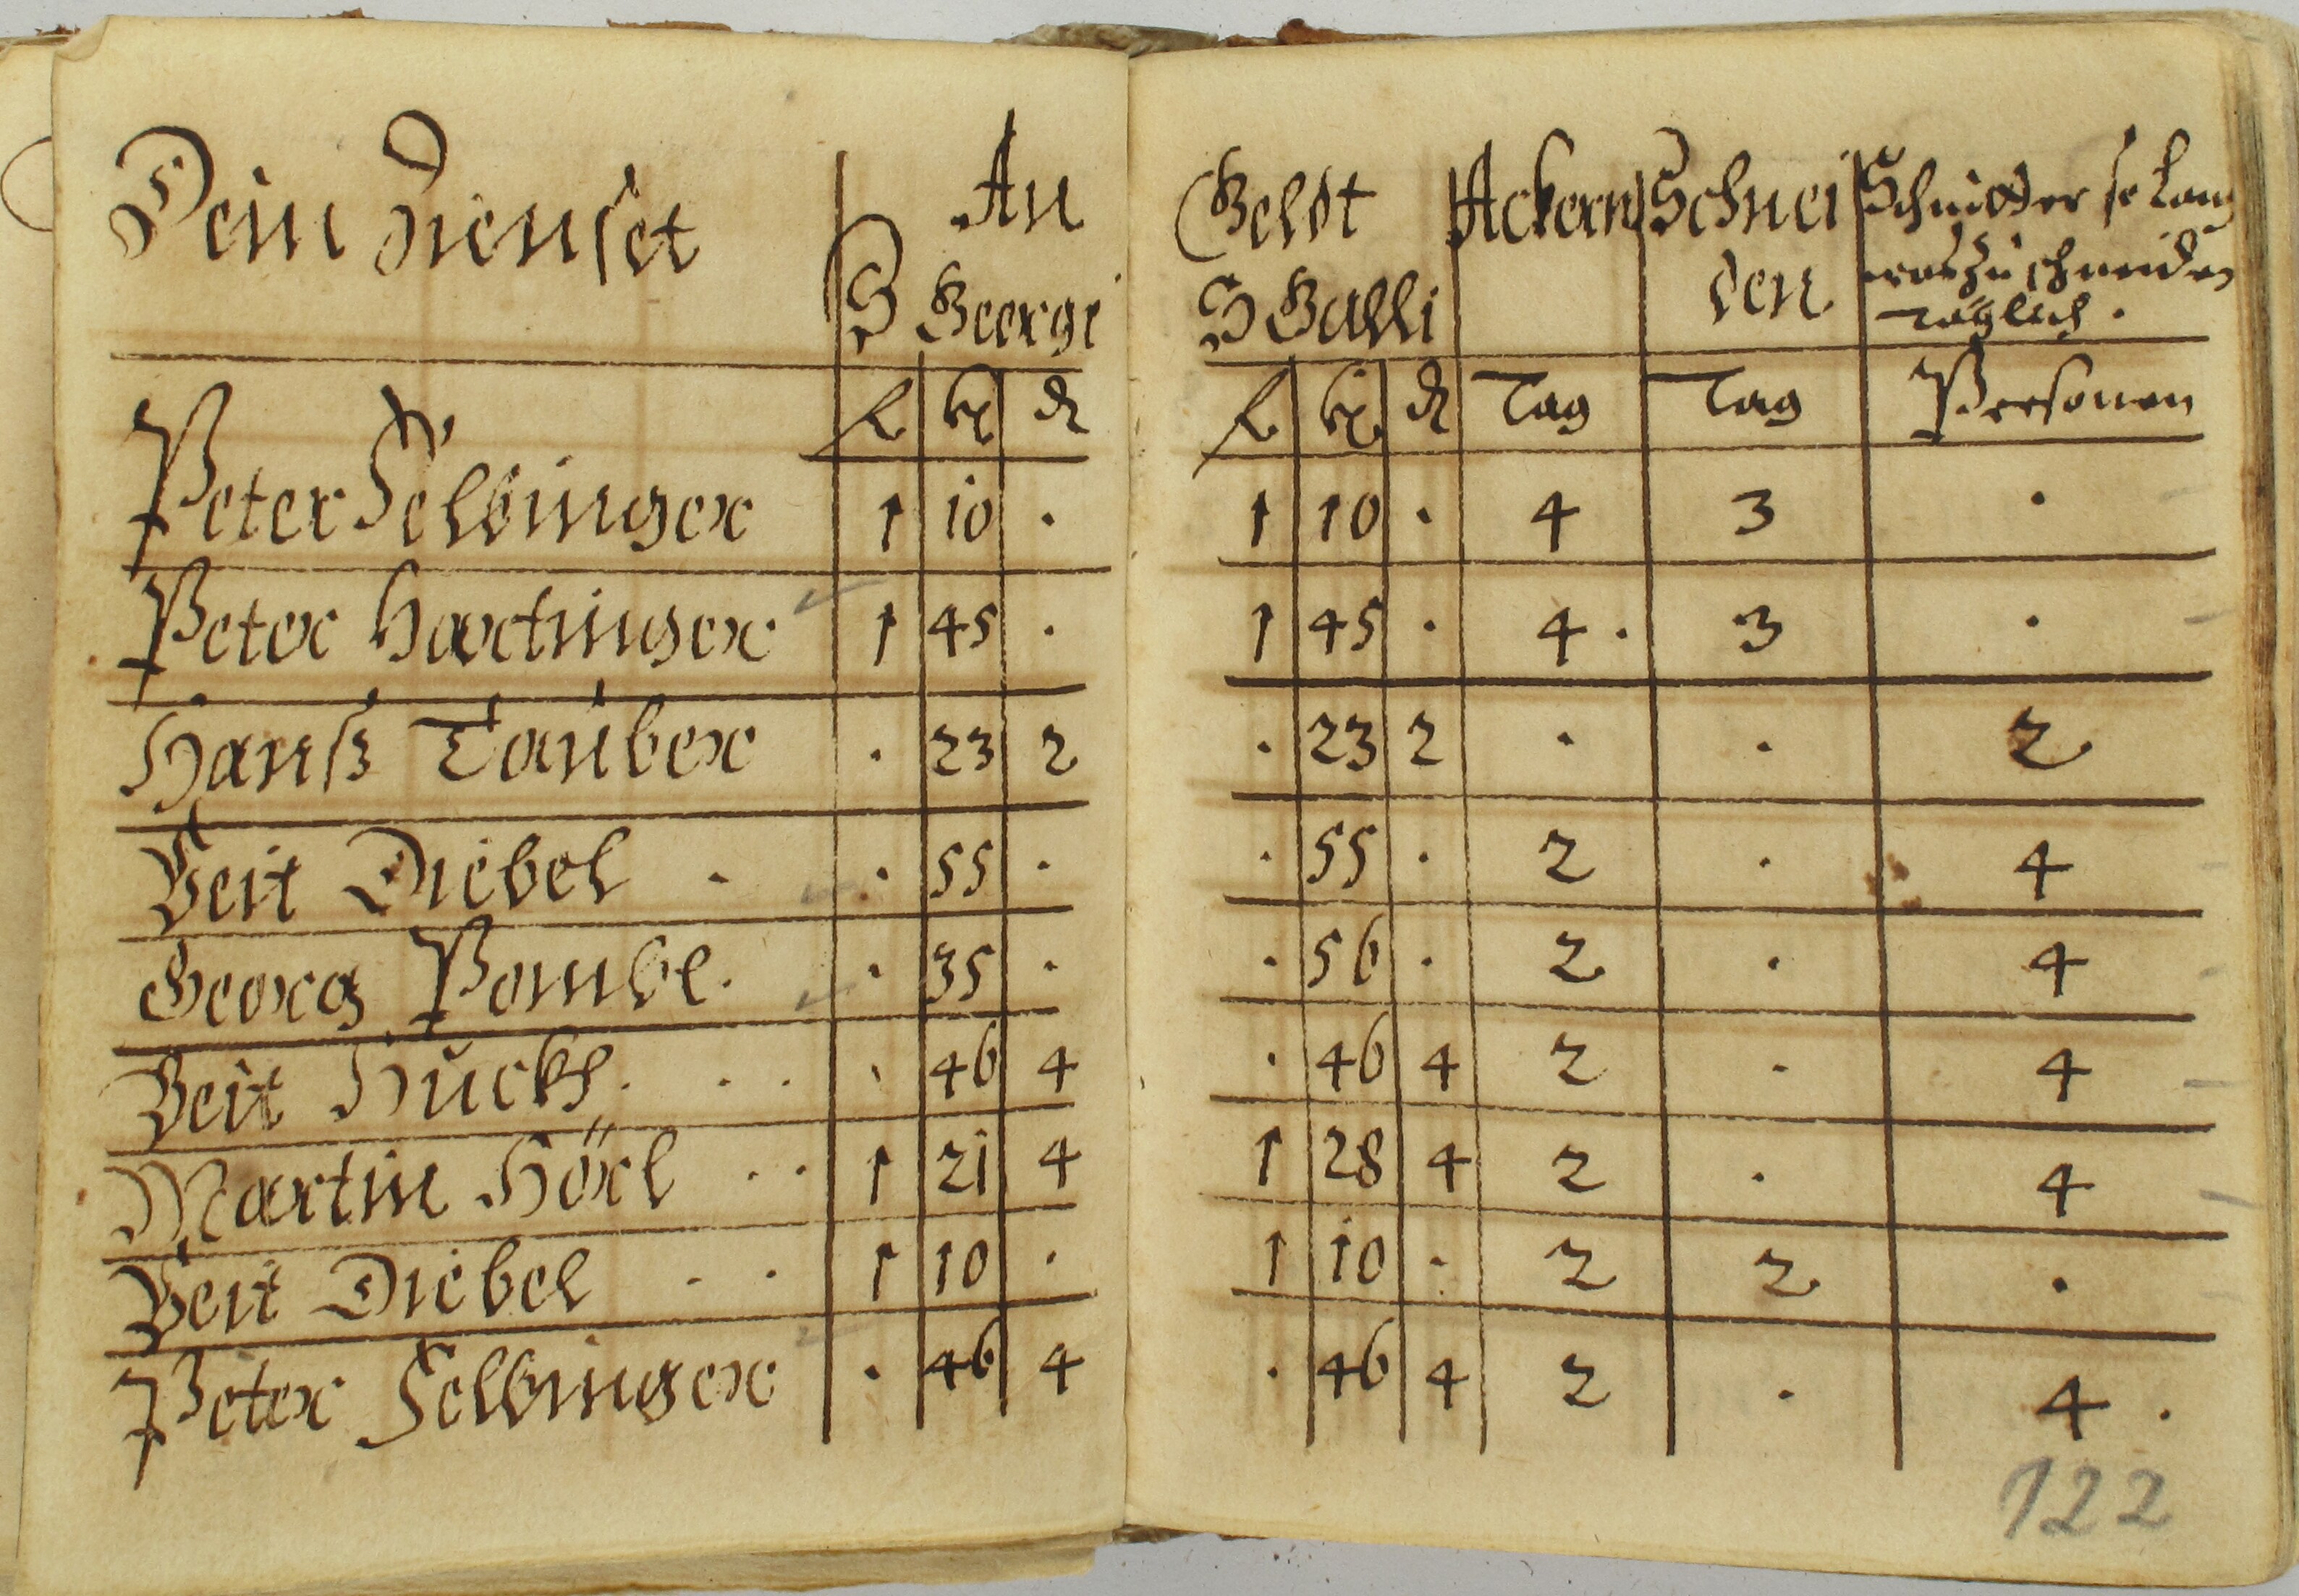 Dein Dienset
An
S Georgi
Geldt
S Galli
Ackern
Schnei
den
Schnitter so lang
was zu schneiden
täglich.
fl kr d
fl kr d Tag Tag Personen
Peter Selbinger 1 10 . 1 10 . 4 3 .
Peter Hartinger 1 45 . 1 45 . 4 . 3 .
Hanß Tauber . 23 2 . 23 2 . . 2
Veit Diebel . . 55 . . 55 . 2 . 4
Georg . . 35 . . 56 . 2 . 4
Veit Huckl . . . . 46 4 . 46 4 2 . 4
Martin Hörl . . 1 21 4 1 28 4 2 . 4
Veit Diebel . . 1 10 . 1 10 . 2 2 .
Peter Selbinger . 46 4 . 46 4 2 . 4 .
122